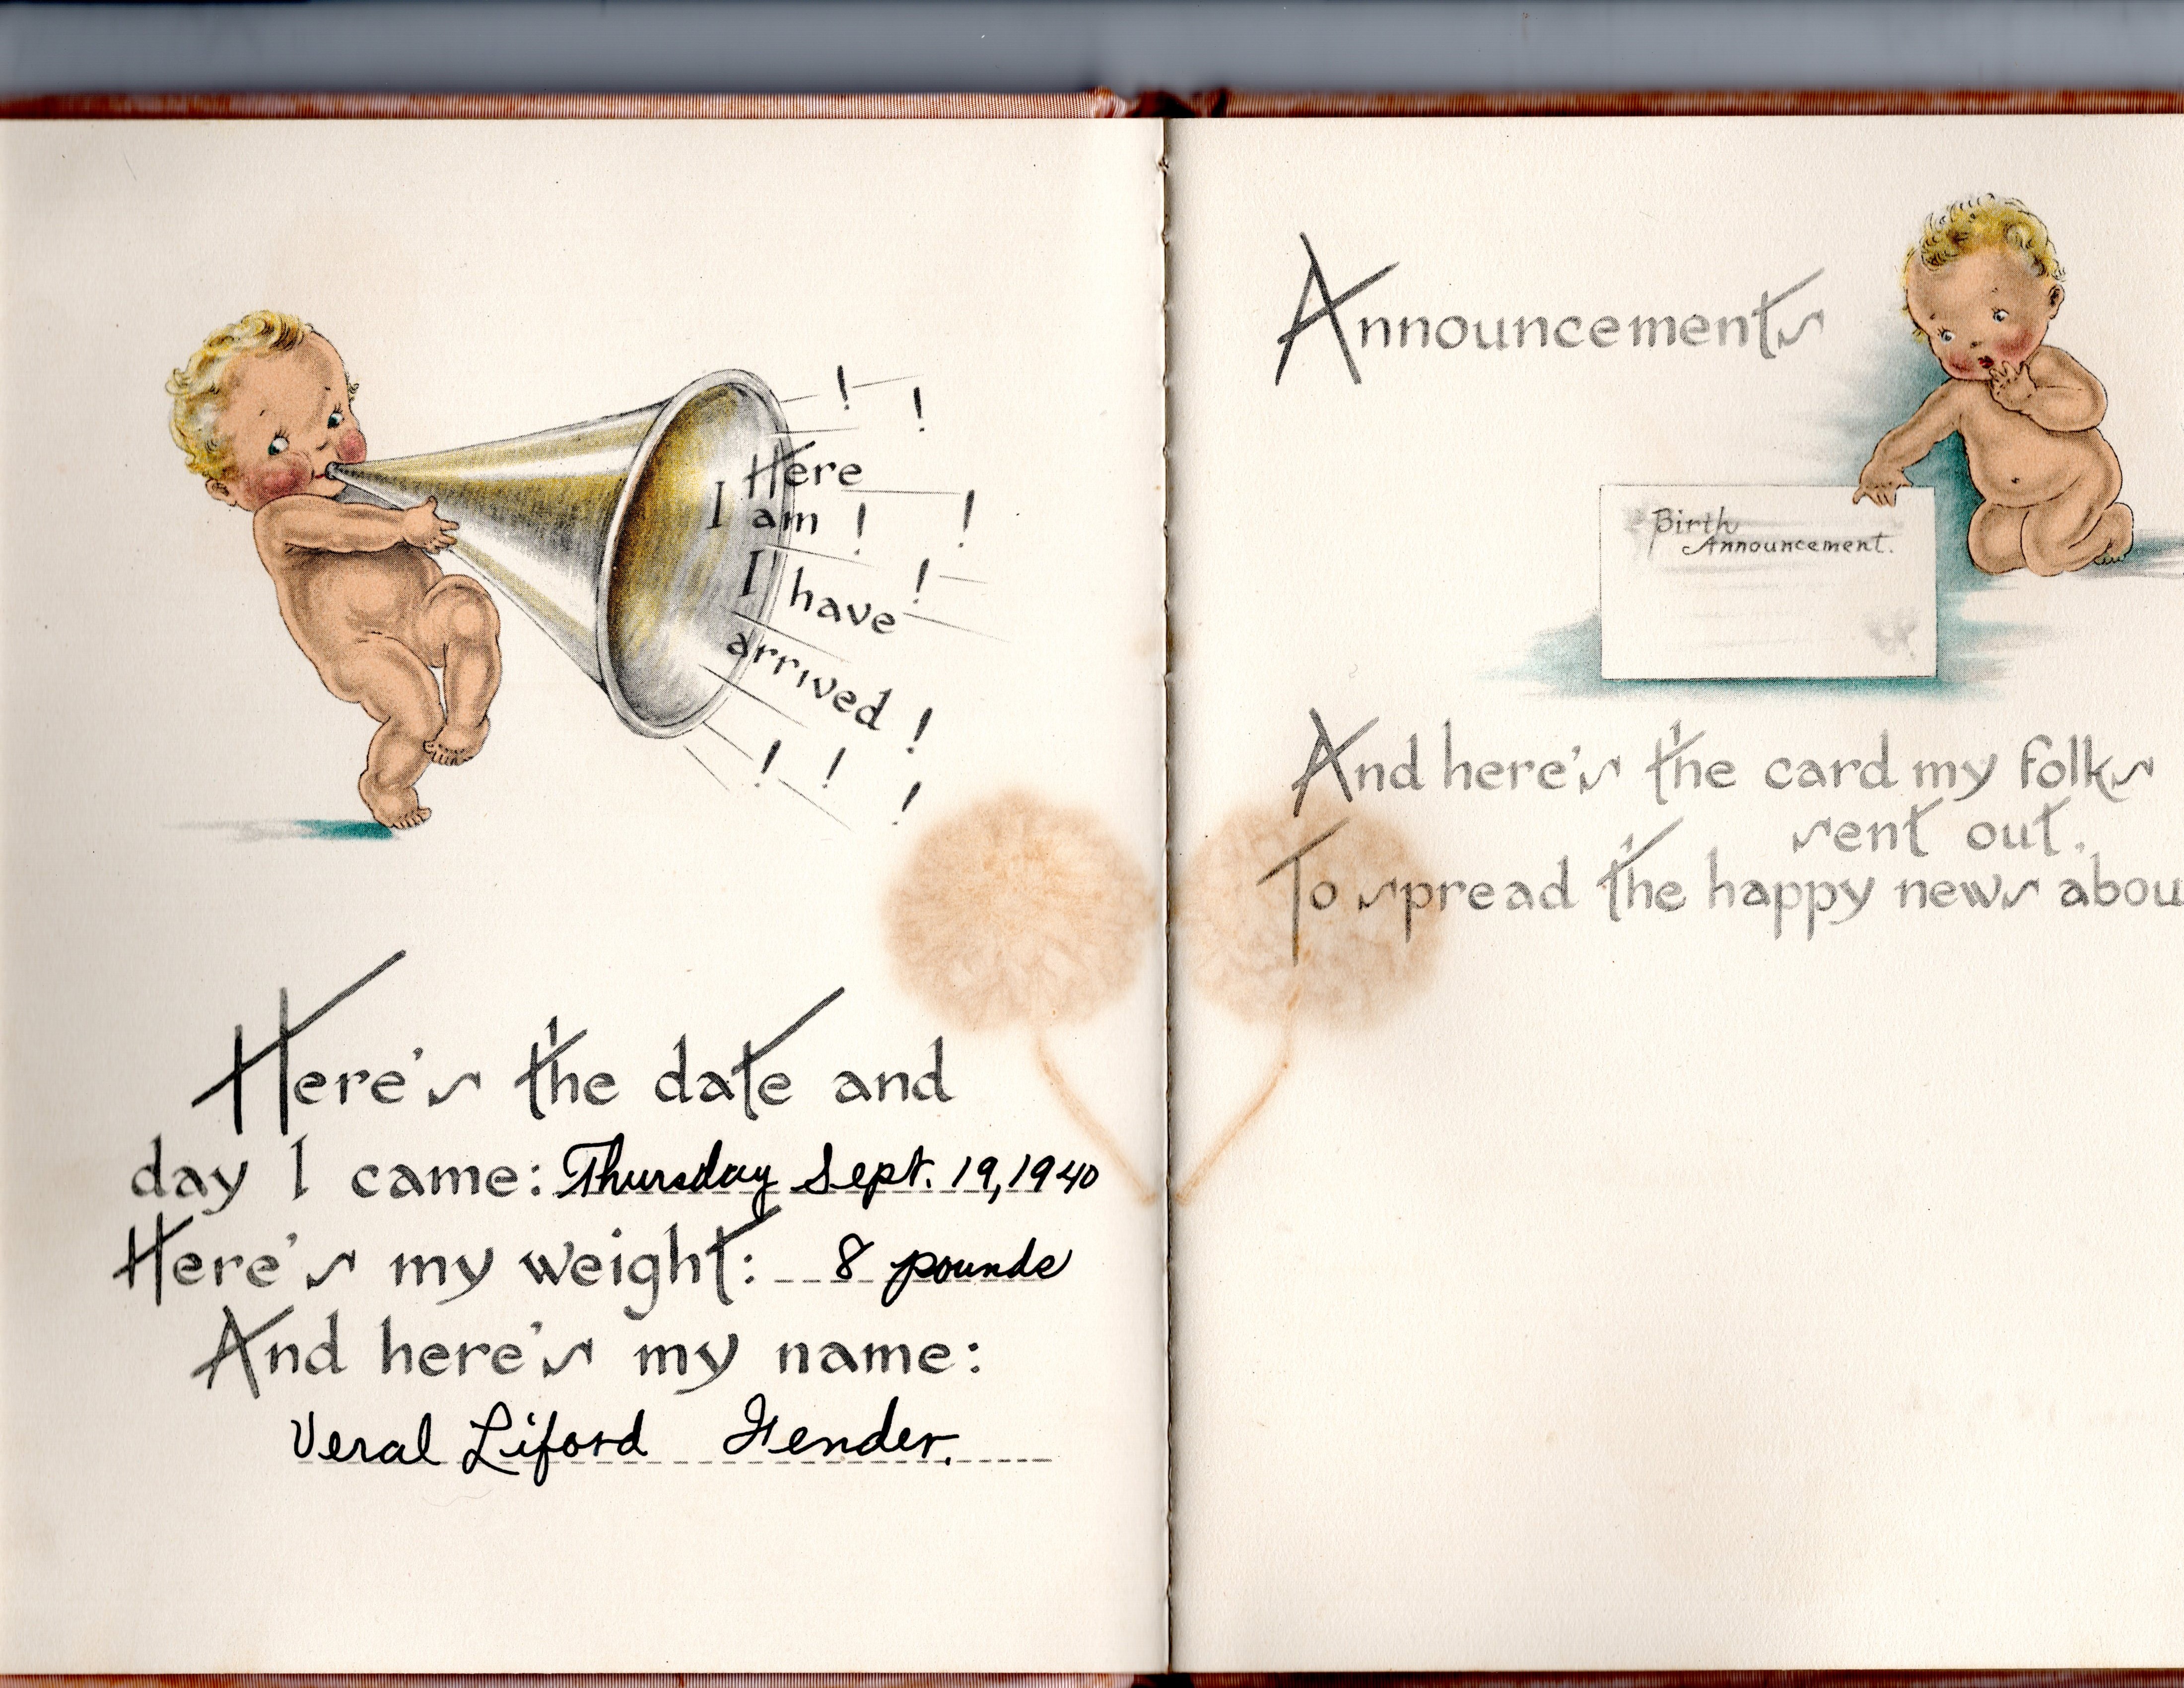 ! !
Here
I am ! !
I have !
arrived !
! ! !
Here's the date and
day I came: Thursday Sept. 19, 1940
Here's my weight: 8 pounds
And here's my name:
Veral Liford Fender.
Announcements
Birth
Announcement.
And here's the card my folks
sent out.
To spread the happy news abou